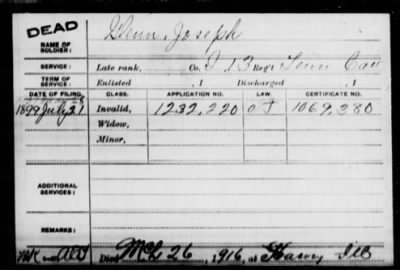 DEAD
NAME OF SOLDIER: Glenn, Joseph
SERVICE: Late rank, Co. I 13 Reg't Tenn Cav
TERM OF SERVICE: Enlisted , 1 Discharged , 1
DATE OF FILING. CLASS. APPLICATION NO. LAW. CERTIFICATE NO.
1899 July 21 Invalid, 1232,220 1069,380
Widow,
Minor,
ADDITIONAL SERVICES:
REMARKS:
Died Mch 26, 1916, at Ills